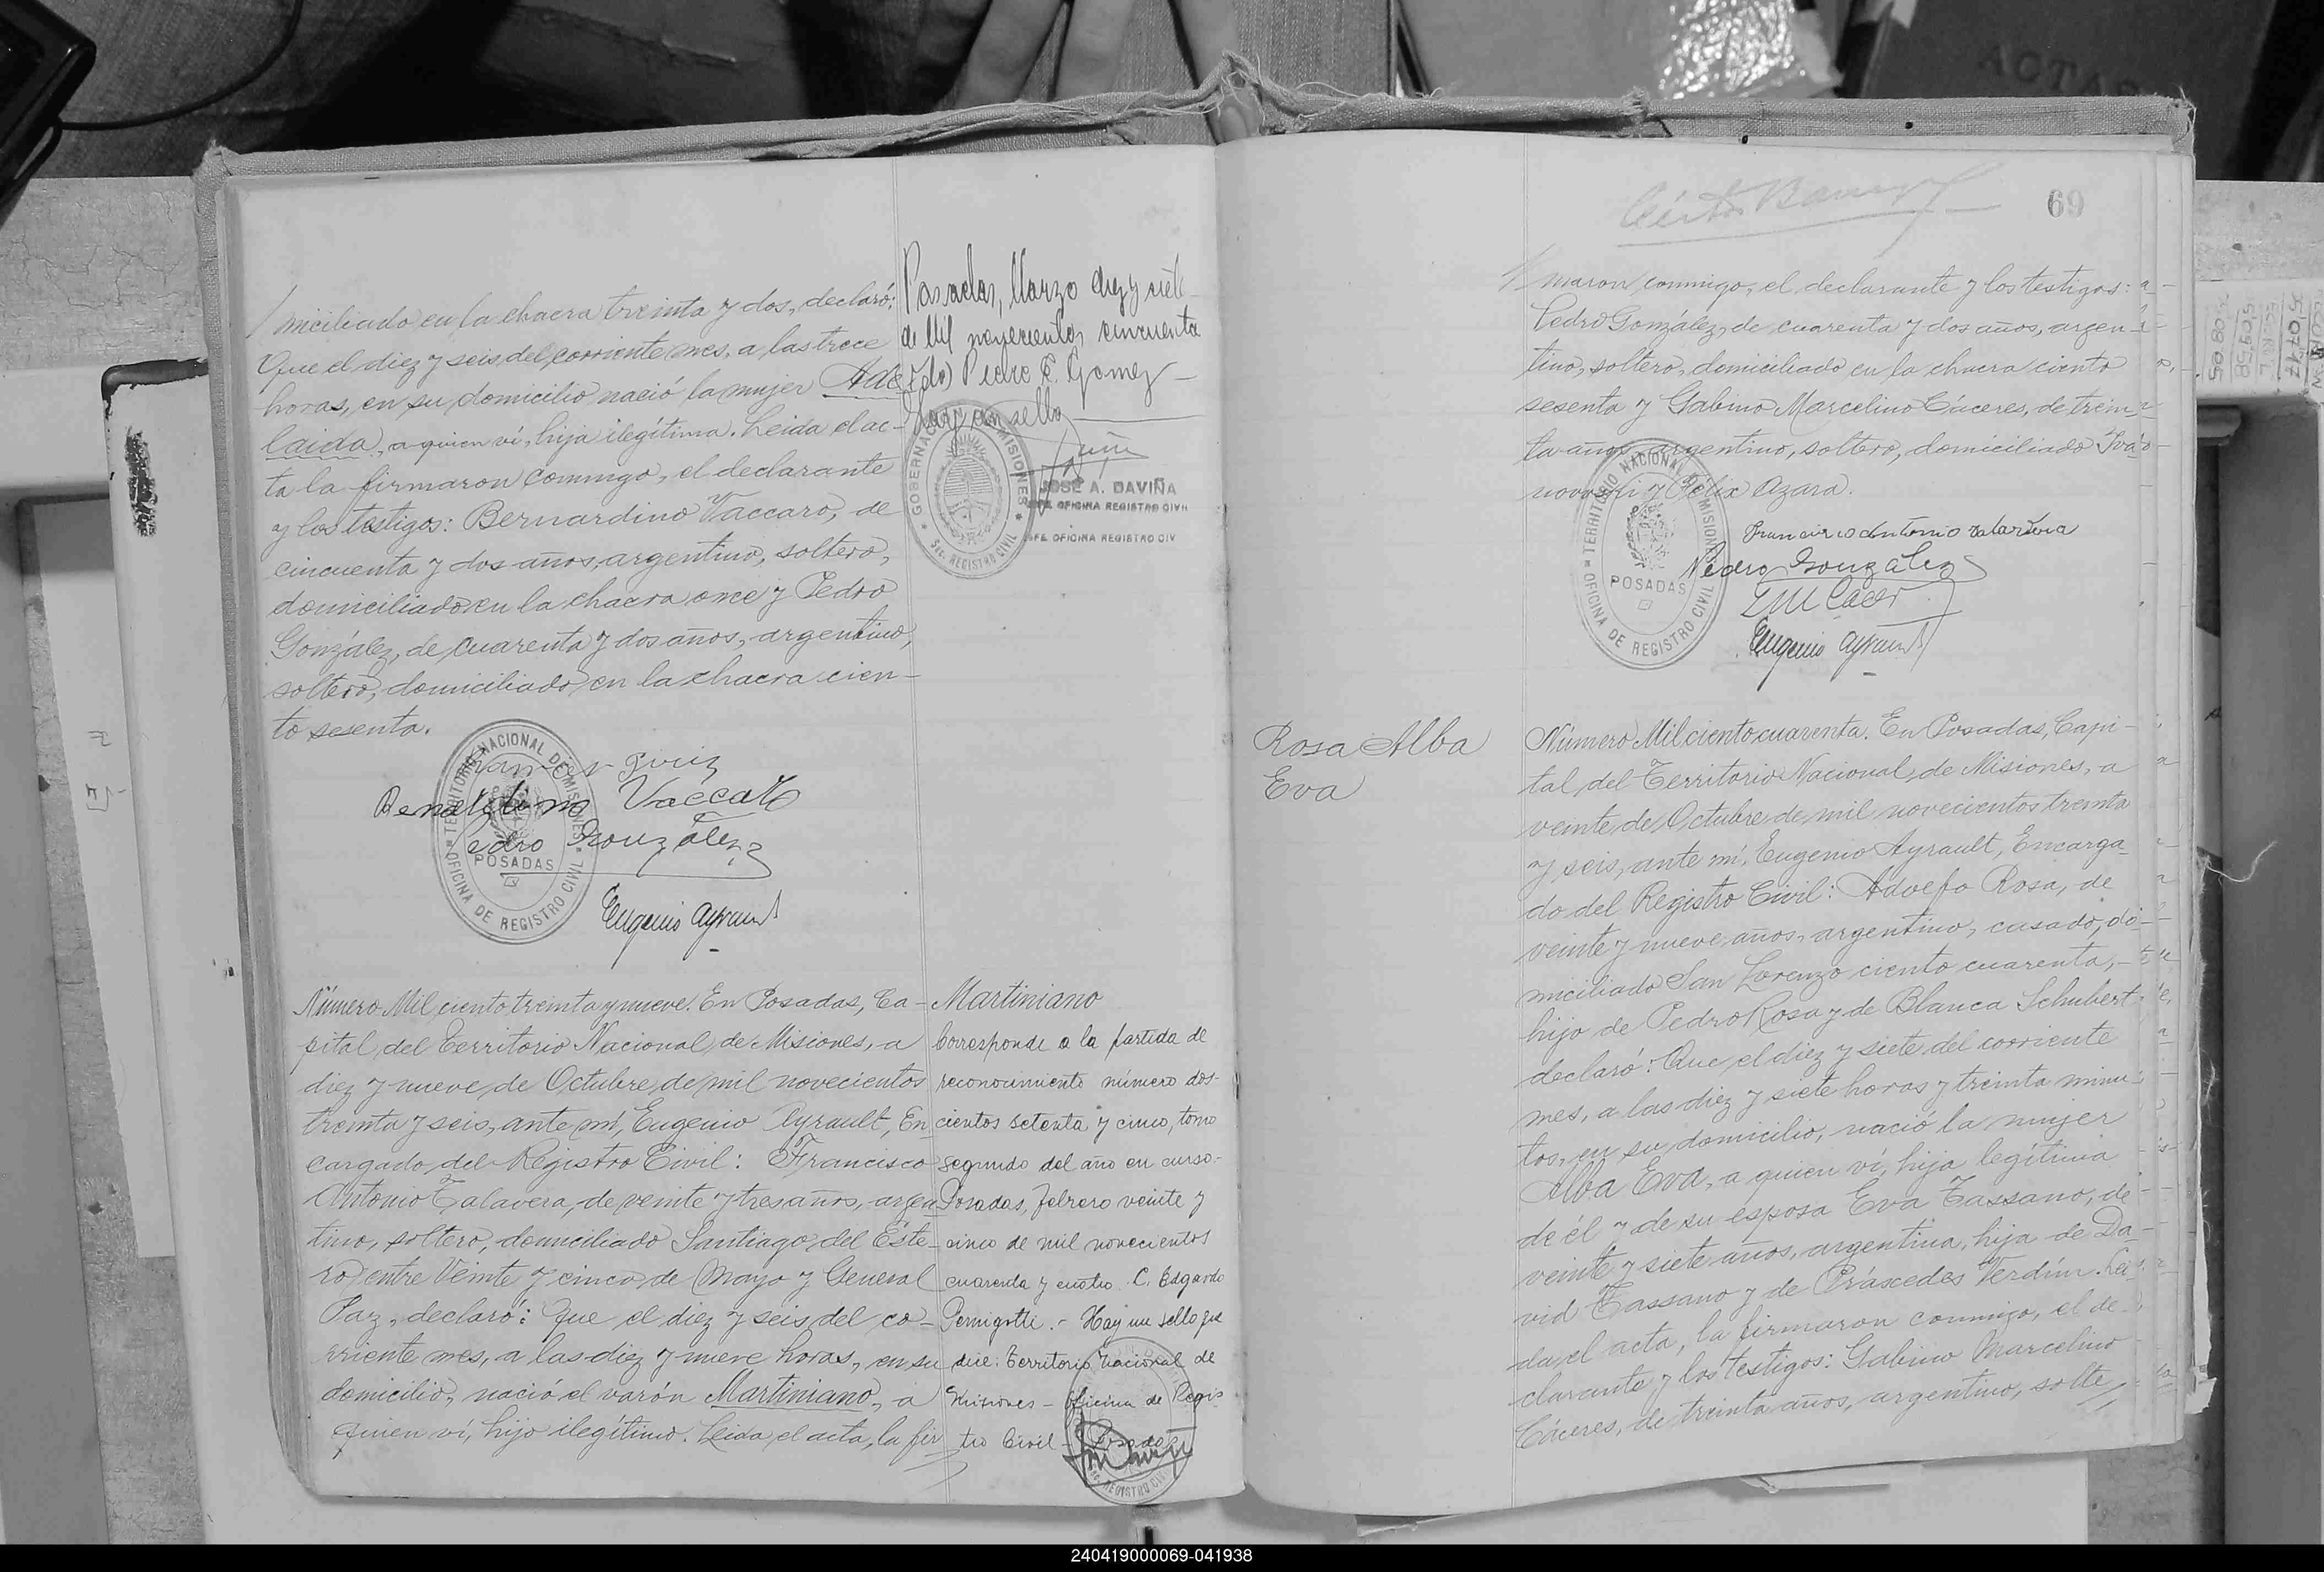 miciliado en la chacra treinta y dos, declaró:
Que el diez y seis del corriente mes, a las trece
horas, en su domicilio nació la mujer Ade-
laida, a quien ví, hija ilegítima. Leida el ac-
ta la firmaron conmigo, el declarante
y los testigos: Bernardino Vaccaro, de
cincuenta y dos años, argentino, soltero,
domiciliado en la chacra once y Pedro
González, de cuarenta y dos años, argentino,
soltero, domiciliado en la chacra cien-
to sesenta.
Posadas, Marzo diez y siete
de Mil novecientos cincuenta
y dos) Pedro E. Gomez
Hay un sello
GOBERNACION MISIONES
Sec. REGISTRO CIVIL
JOSÉ A. DAVIÑA
JEFE OFICINA REGISTRO CIVIL
JEFE OFICINA REGISTRO CIV
TERRITORIO NACIONAL DE MISIONES
POSADAS
OFICINA DE REGISTRO CIVIL
Vaccaro
Pedro González
Eugenio Ayrault
Número Mil ciento treinta y nueve. En Posadas, Ca-
pital del Territorio Nacional de Misiones, a
diez y nueve de Octubre de mil novecientos
treinta y seis, ante mí, Eugenio Ayrault, En
cargado del Registro Civil: Francisco
Antonio Talavera, de veinte y tres años, argen
tino, soltero, domiciliado Santiago del Este-
ro entre Veinte y cinco de Mayo y General
Paz, declaró: Que el diez y seis del co-
rriente mes, a las diez y nueve horas, en su
domicilio, nació el varón Martiniano, a
quien ví, hijo ilegítimo. Leida el acta, la fir
Martiniano
Corresponde a la partida de
reconocimiento número dos-
cientos setenta y cinco, tomo
segundo del año en curso.
Posadas, febrero veinte y
cinco de mil novecientos
cuarenta y cuatro. C. Edgardo
Pernigotti.- Hay un sello que
dice: Territorio Nacional de
Misiones - Oficina de Regis-
tro Civil - Posadas
REGISTRO CIVIL
69
maron conmigo, el declarante y los testigos:
Pedro González, de cuarenta y dos años, argen-
tino, soltero, domiciliado en la chacra ciento
sesenta y Gabino Marcelino Cáceres, de trein-
ta años, argentino, soltero, domiciliado Ivá-
novski y Félix Azara.
TERRITORIO NACIONAL DE MISIONES
POSADAS
OFICINA DE REGISTRO CIVIL
Francisco Antonio Talavera
Pedro González
Eugenio Ayrault
Rosa Alba
Eva
Número Mil ciento cuarenta. En Posadas, Capi-
tal del Territorio Nacional de Misiones, a
veinte de Octubre de mil novecientos treinta
y seis, ante mí, Eugenio Ayrault, Encarga-
do del Registro Civil: Adolfo Rosa, de
veinte y nueve años, argentino, casado, do-
miciliado San Lorenzo ciento cuarenta,
hijo de Pedro Rosa y de Blanca Schubert
declaró: Que el diez y siete del corriente
mes, a las diez y siete horas y treinta minu-
tos, en su domicilio, nació la mujer
Alba Eva, a quien ví, hija legítima
de él y de su esposa Eva Tassano, de
veinte y siete años, argentina, hija de Da-
vid Tassano y de Práscedes Verdím. Lei-
da el acta, la firmaron conmigo, el de-
clarante y los testigos: Gabino Marcelino
Cáceres, de treinta años, argentino, solte
240419000069-041938